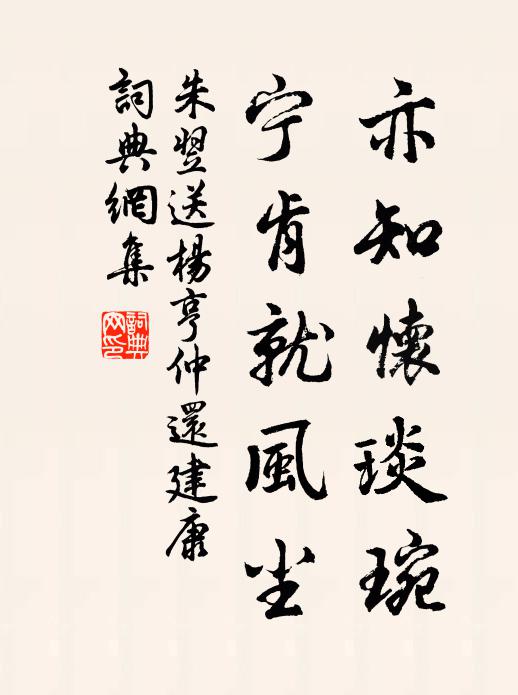 亦知懷琰琬
宁肯就風尘
朱翌送楊亨仲還建康
詞典網集
詞典网印